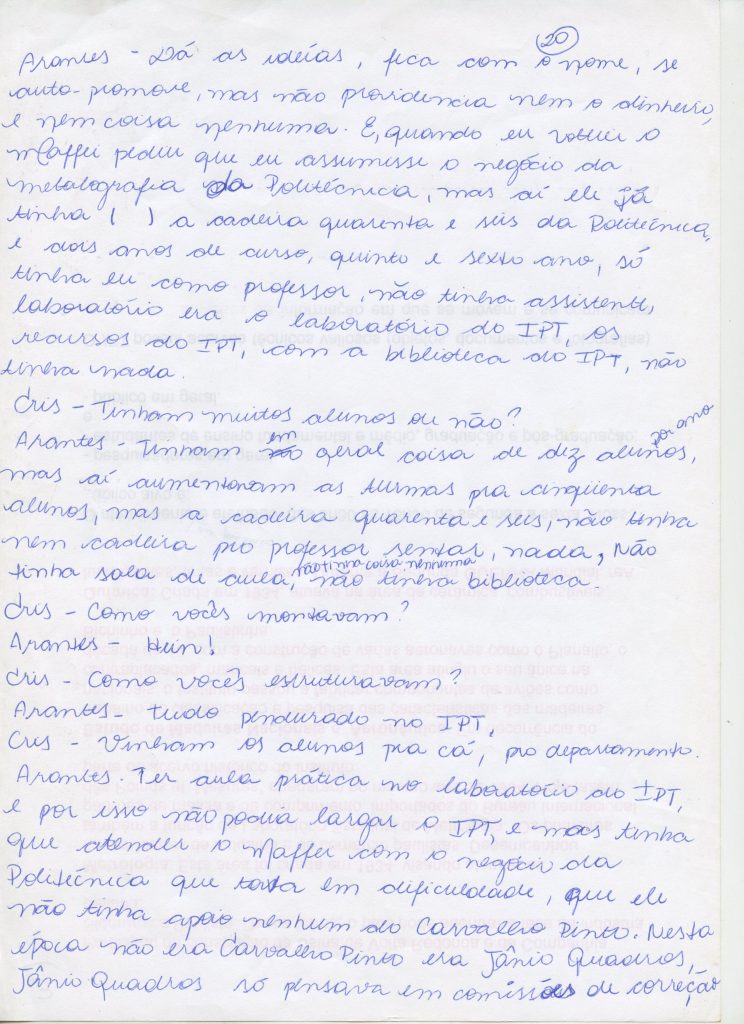 20
Arantes - Dá as idéias, fica com o nome, se
auto-promove, mas não providencia nem o dinheiro,
e nem coisa nenhuma. E, quando eu voltei o
Maffei pediu que eu assumisse o negócio da
metalografia da Politécnica, mas aí ele já
tinha ( ) a cadeira quarenta e seis da Politécnica,
e dois anos de curso, quinto e sexto ano, só
tinha eu como professor, não tinha assistente,
laboratório era o laboratório do IPT, os
recursos do IPT, com a biblioteca do IPT, não
tinha nada.
Cris - Tinham muitos alunos ou não?
Arantes - Tinham em geral coisa de dez alunos, por ano
mas aí aumentavam as turmas pra cinqüenta
alunos, mas a cadeira quarenta e seis, não tinha
nem cadeira pro professor sentar, nada, Não
tinha sala de aula, não tinha coisa nenhuma não tinha biblioteca
Cris - Como vocês montavam?
Arantes - Hein!
Cris - Como vocês estruturavam?
Arantes - tudo pendurado no IPT,
Cris - Vinham os alunos pra cá, pro departamento.
Arantes. Ter aula prática no laboratório do IPT,
e por isso não podia largar o IPT e mas tinha
que atender o Maffei com o negócio da
Politécnica que tava em dificuldade, que ele
não tinha apoio nenhum do Carvalho Pinto. Nesta
época não era Carvalho Pinto era Jânio Quadros,
Jânio Quadros só pensava em comissões de correção